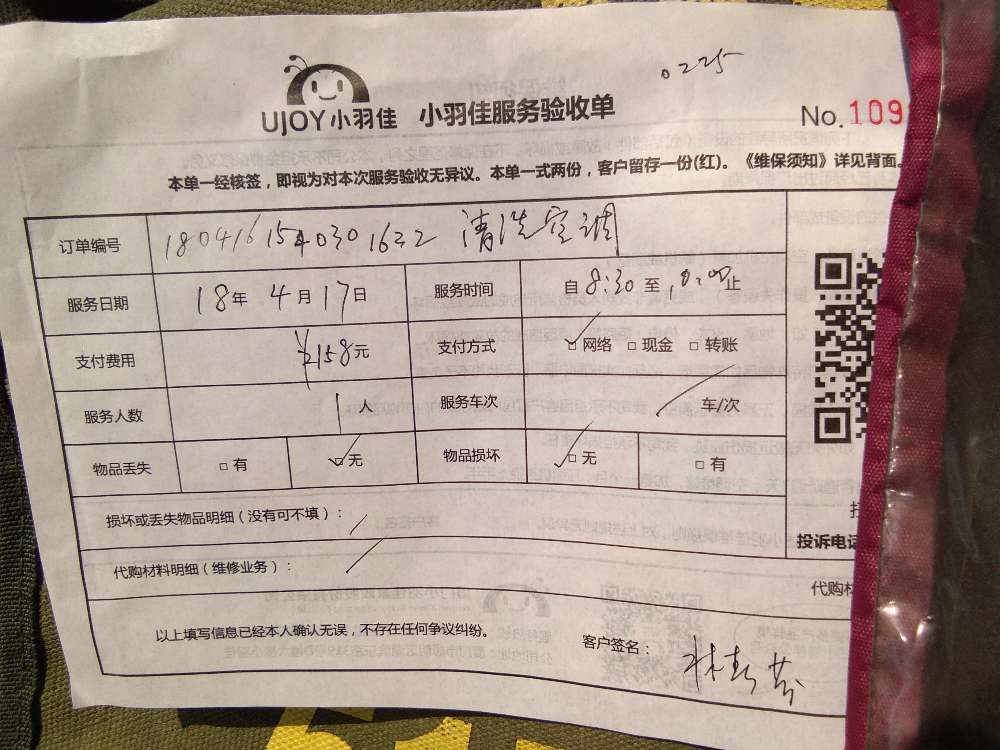 0225
UJOY小羽佳 小羽佳服务验收单
No.109
本单一经核签，即视为对本次服务验收无异议。本单一式两份，客户留存一份(红)。《维保须知》详见背面。
订单编号 1804161540301622 清洗空调
服务日期 18年4月17日 服务时间 自8:30至10:00止
支付费用 ¥158元 支付方式 ✓网络 □现金 □转账
服务人数 1人 服务车次 / 车/次
物品丢失 □有 ☑无 物品损坏 ☑无 □有
损坏或丢失物品明细（没有可不填）： /
投诉电话
代购材料明细（维修业务）： /
代购材
以上填写信息已经本人确认无误，不存在任何争议纠纷。
客户签名：